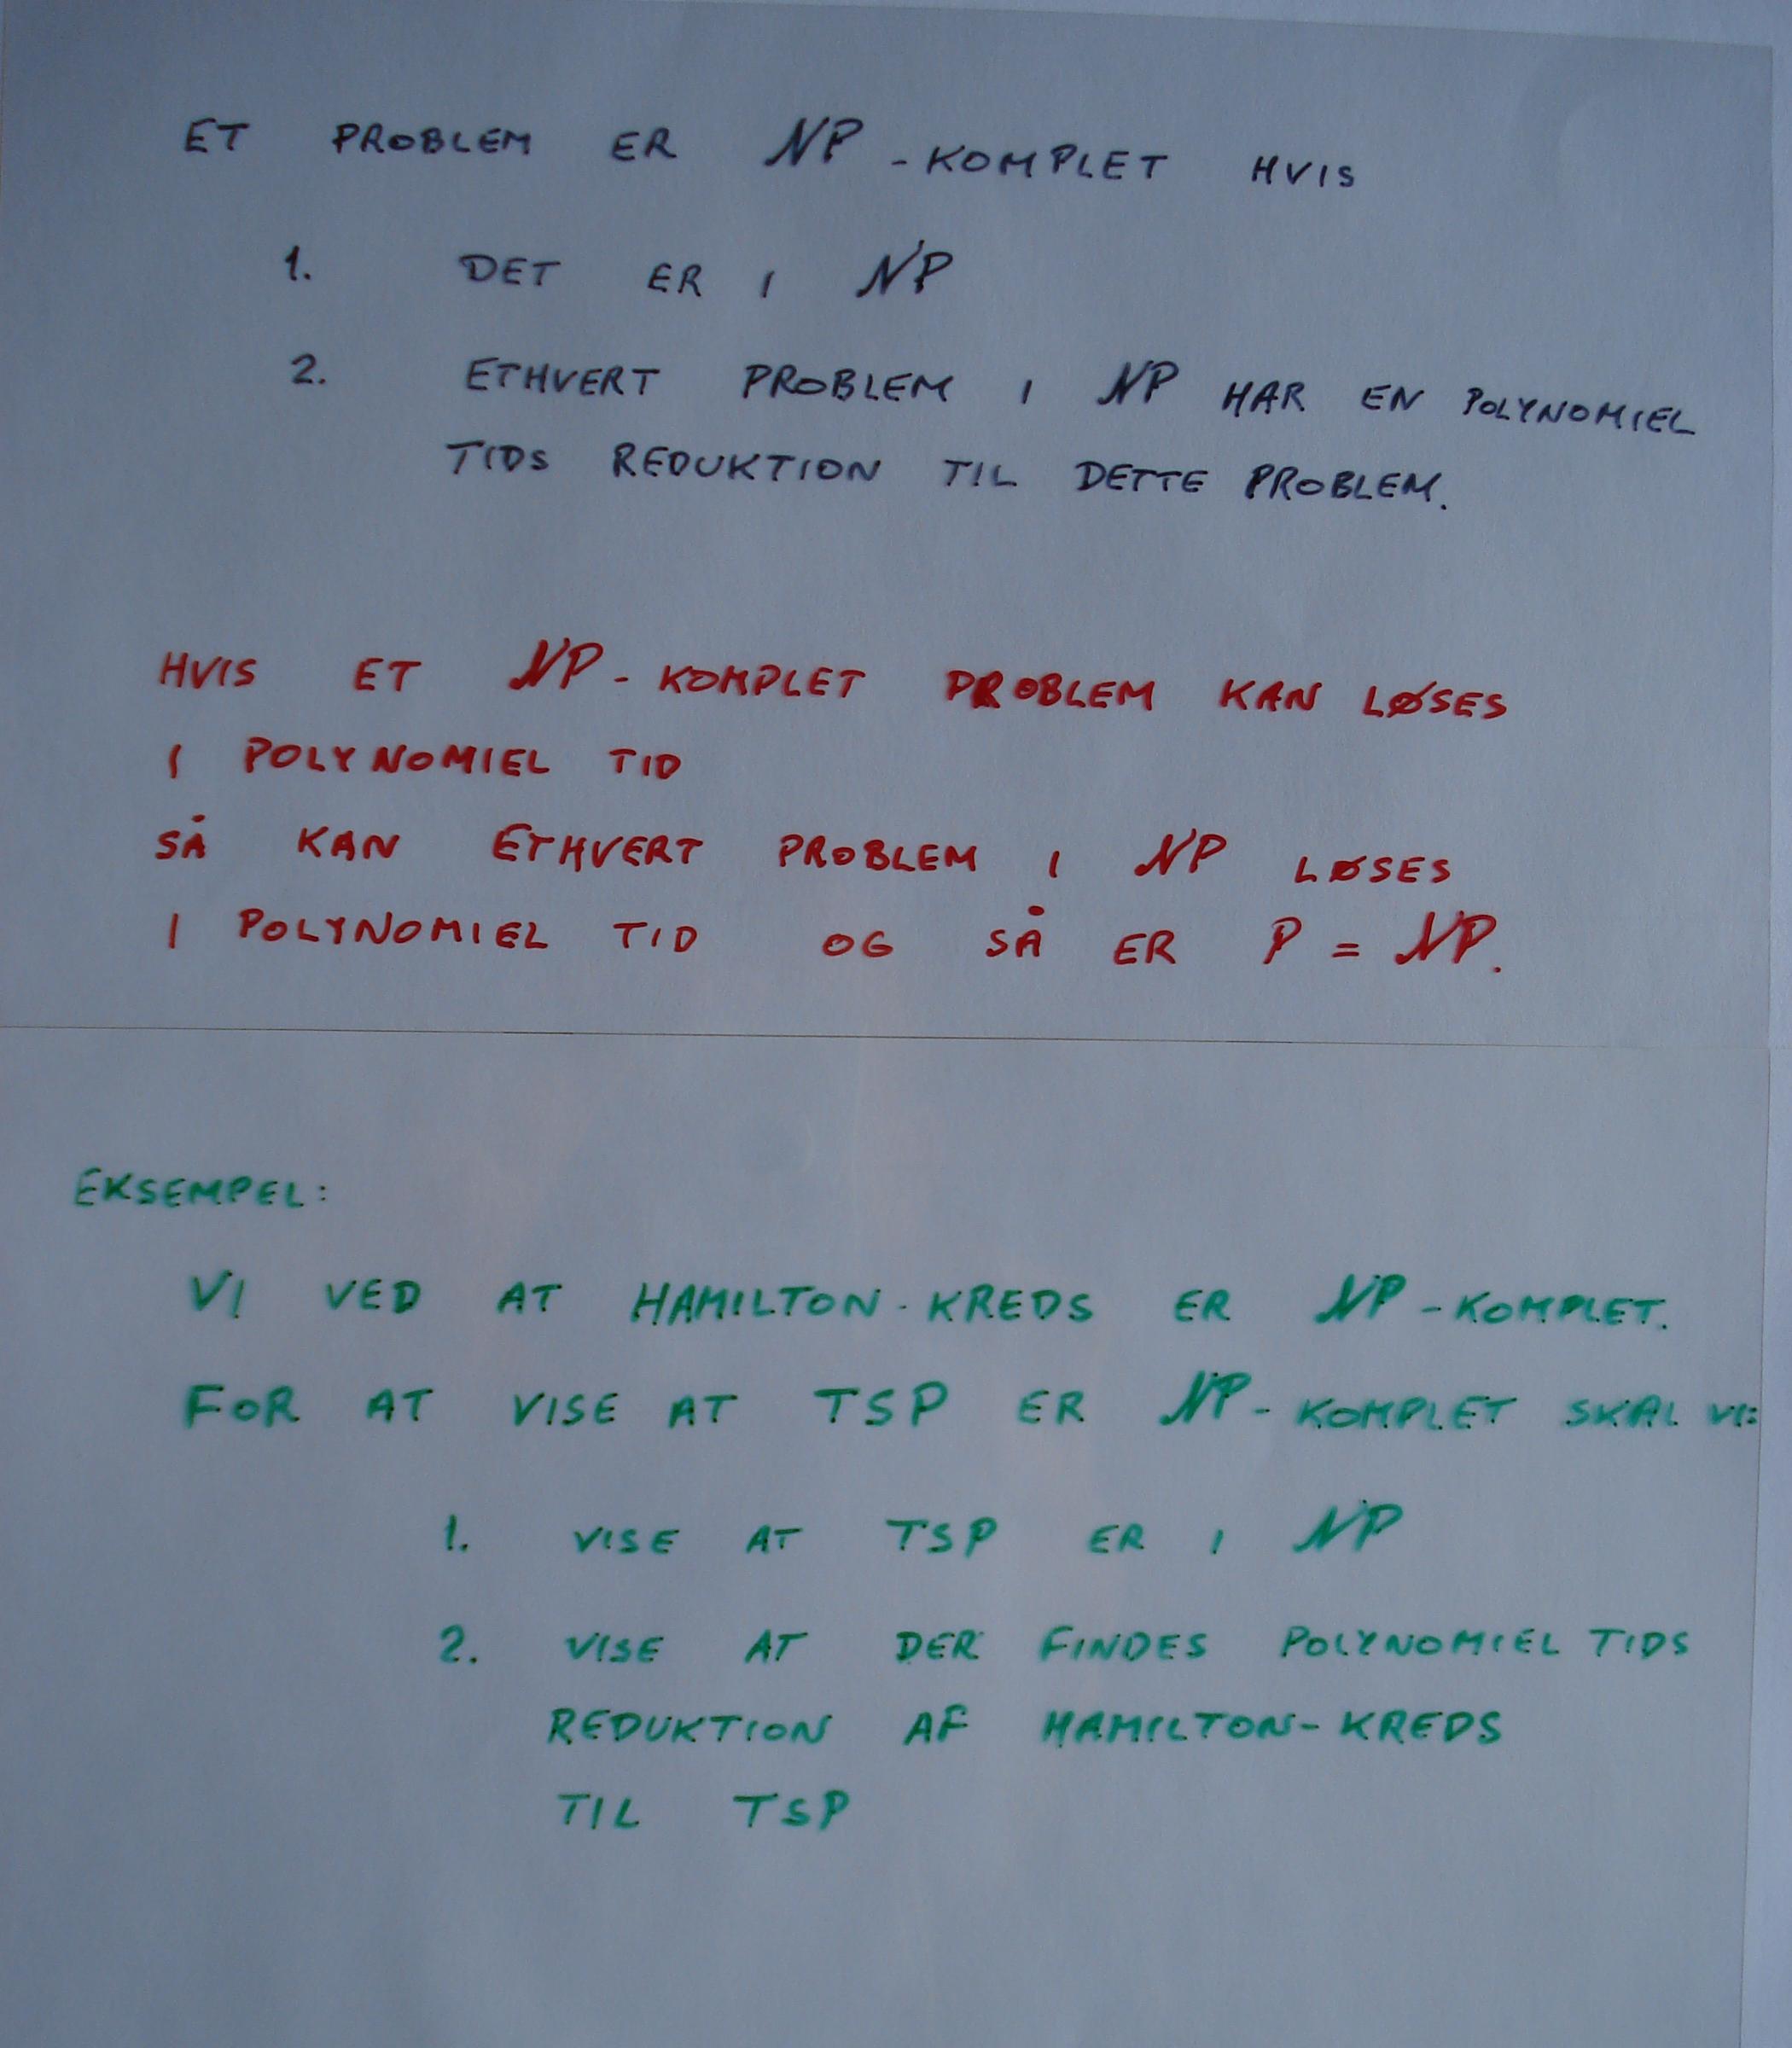 ET PROBLEM ER NP-KOMPLET HVIS
1. DET ER I NP
2. ETHVERT PROBLEM I NP HAR EN POLYNOMIEL
TIDS REDUKTION TIL DETTE PROBLEM.
HVIS ET NP-KOMPLET PROBLEM KAN LØSES
I POLYNOMIEL TID
SÅ KAN ETHVERT PROBLEM I NP LØSES
I POLYNOMIEL TID OG SÅ ER P = NP.
EKSEMPEL:
VI VED AT HAMILTON-KREDS ER NP-KOMPLET.
FOR AT VISE AT TSP ER NP-KOMPLET SKAL VI:
1. VISE AT TSP ER I NP
2. VISE AT DER FINDES POLYNOMIEL TIDS
REDUKTION AF HAMILTON-KREDS
TIL TSP